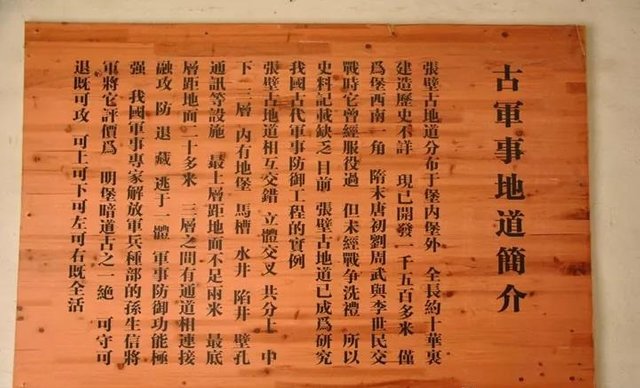 古軍事地道簡介
張壁古地道分布于堡内堡外 全長約十華裏
建造歷史不詳 現已開發一千五百多米 僅
爲堡西南一角 隋末唐初劉周武與李世民交
戰時它曾經服役過 但未經戰争洗禮 所以
史料記載缺乏目前 張壁古地道已成爲研究
我國古代軍事防御工程的實例
張壁古地道相互交錯 立體交叉 共分上 中
下 三層 内有地堡 馬槽 水井 陷井 壁孔
通訊等設施 最上層距地面不足兩米 最底
層距地面二十多米 三層之間有通道相連接
融攻 防 退 藏 逃于一體 軍事防御功能極
强 我國軍事專家解放軍兵種部的孫生信將
軍將它評價爲 明堡暗道古之一絶 可守可
退既可攻 可上可下可左可右既全活